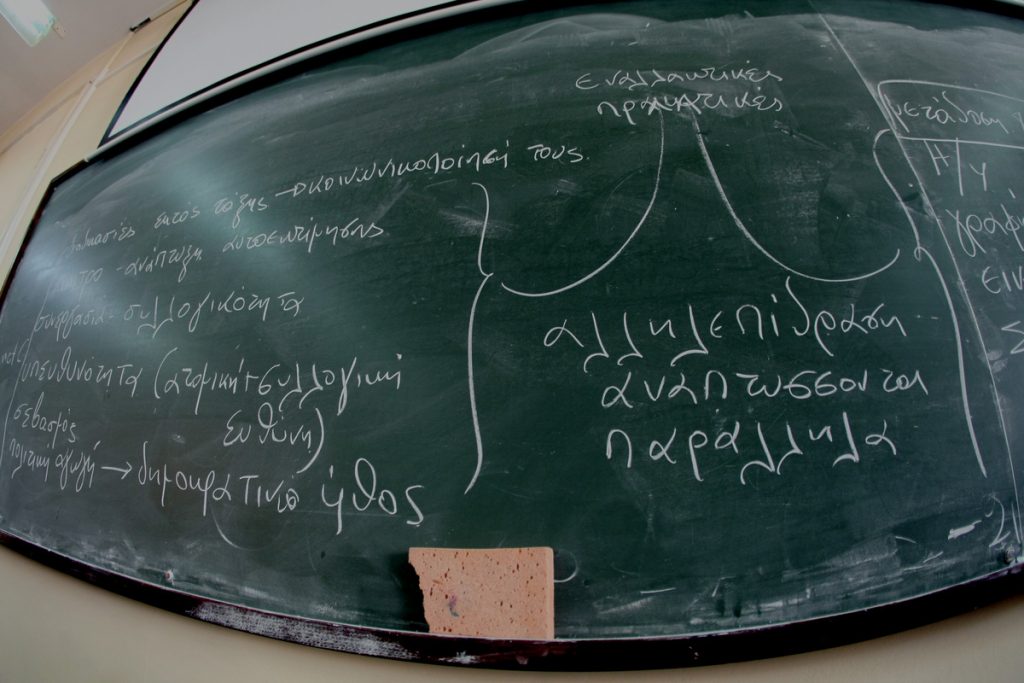 εναλλακτικές
πρακτικές
διαδικασίες εκτός τάξης → κοινωνικοποίησή τους
κίνητρο - ανάπτυξη αυτοεκτίμησης
συνεργασία - συλλογικότητα
υπευθυνότητα (ατομική + συλλογική
ευθύνη)
σεβασμός
πολιτική αγωγή → δημοκρατικό ήθος
αλληλεπίδραση
αναπτύσσονται
παράλληλα
μετάδοση
Η/Υ